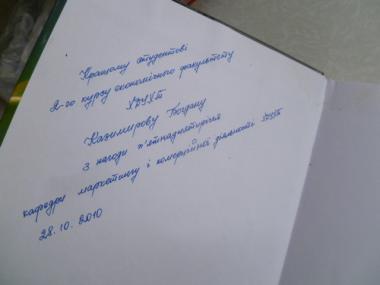 Кращому студентові
2-го курсу економічного факультету
ХДУХТ
Казимирову Богдану
з нагоди п'ятнадцятиріччя
кафедри маркетингу і комерційної діяльності ХДУХТ
28.10.2010